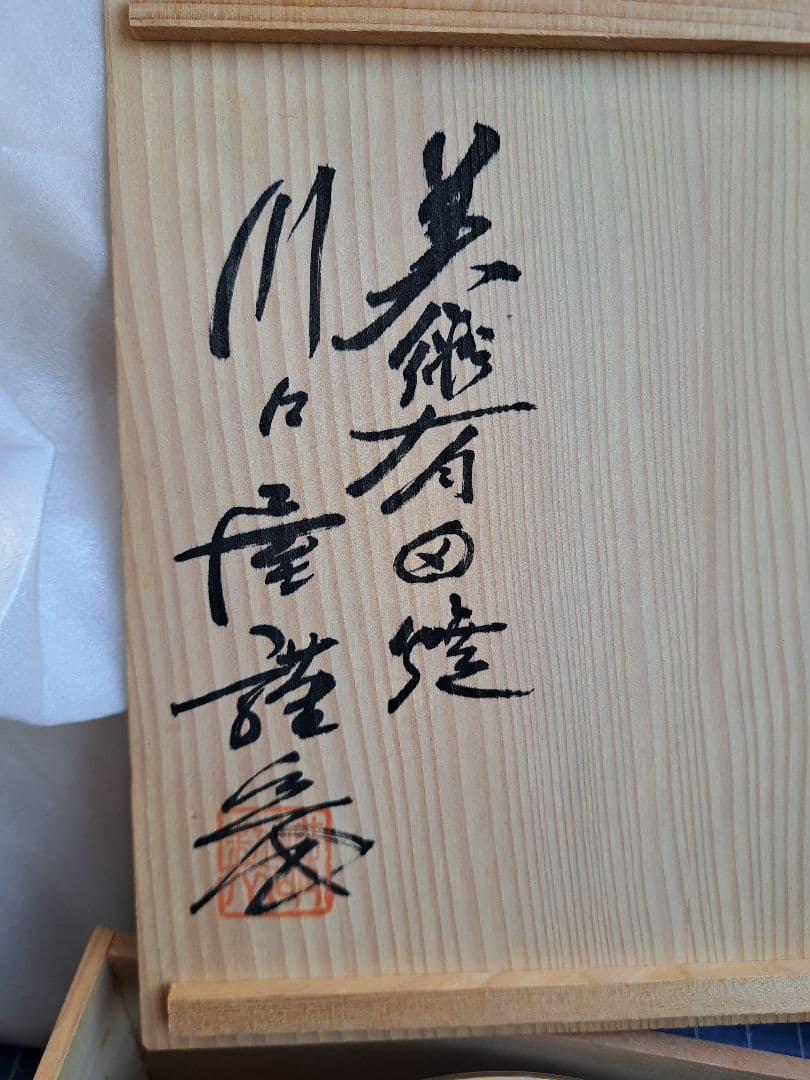 美術有田焼
川口屋謹製